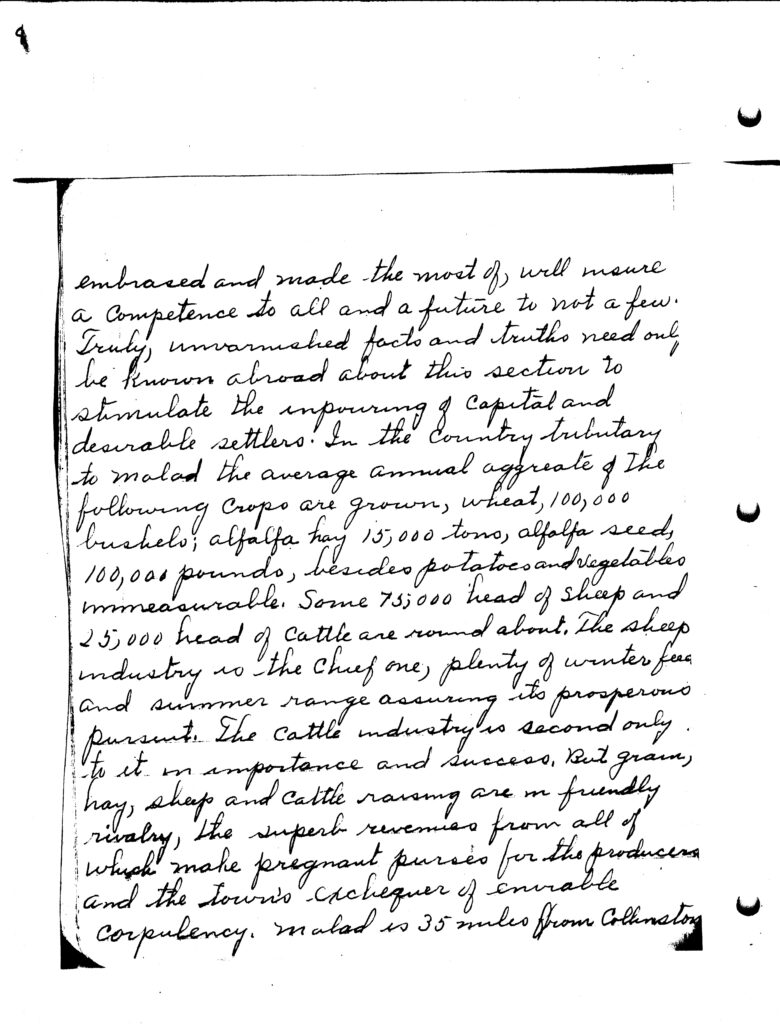 8
embrased and made the most of, will insure
a Competence to all and a future to not a few.
Truly, unvarnished facts and truths need only
be known abroad about this section to
stimulate the inpouring of Capital and
desirable settlers. In the Country tributary
to Malad the average annual aggreate of The
following Crops are grown, wheat, 100,000
bushels; alfalfa hay 15,000 tons, alfalfa seed,
100,000 pounds, besides potatoes and vegetables
immeasurable. Some 75,000 head of Sheep and
25,000 head of Cattle are round about. The sheep
industry is the Chief one, plenty of winter feed
and summer range assuring its prosperous
pursuit. The Cattle industry is second only
to it in importance and success. But grain,
hay, sheep and Cattle raising are in friendly
rivalry, the superb revenues from all of
which make pregnant purses for the producers
and the town's exchequer of enviable
corpulency. Malad is 35 miles from Collinston